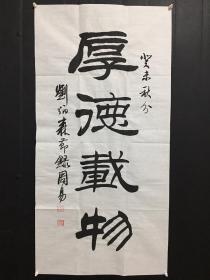 癸未秋分
厚德載物
劉炳森節錄周易